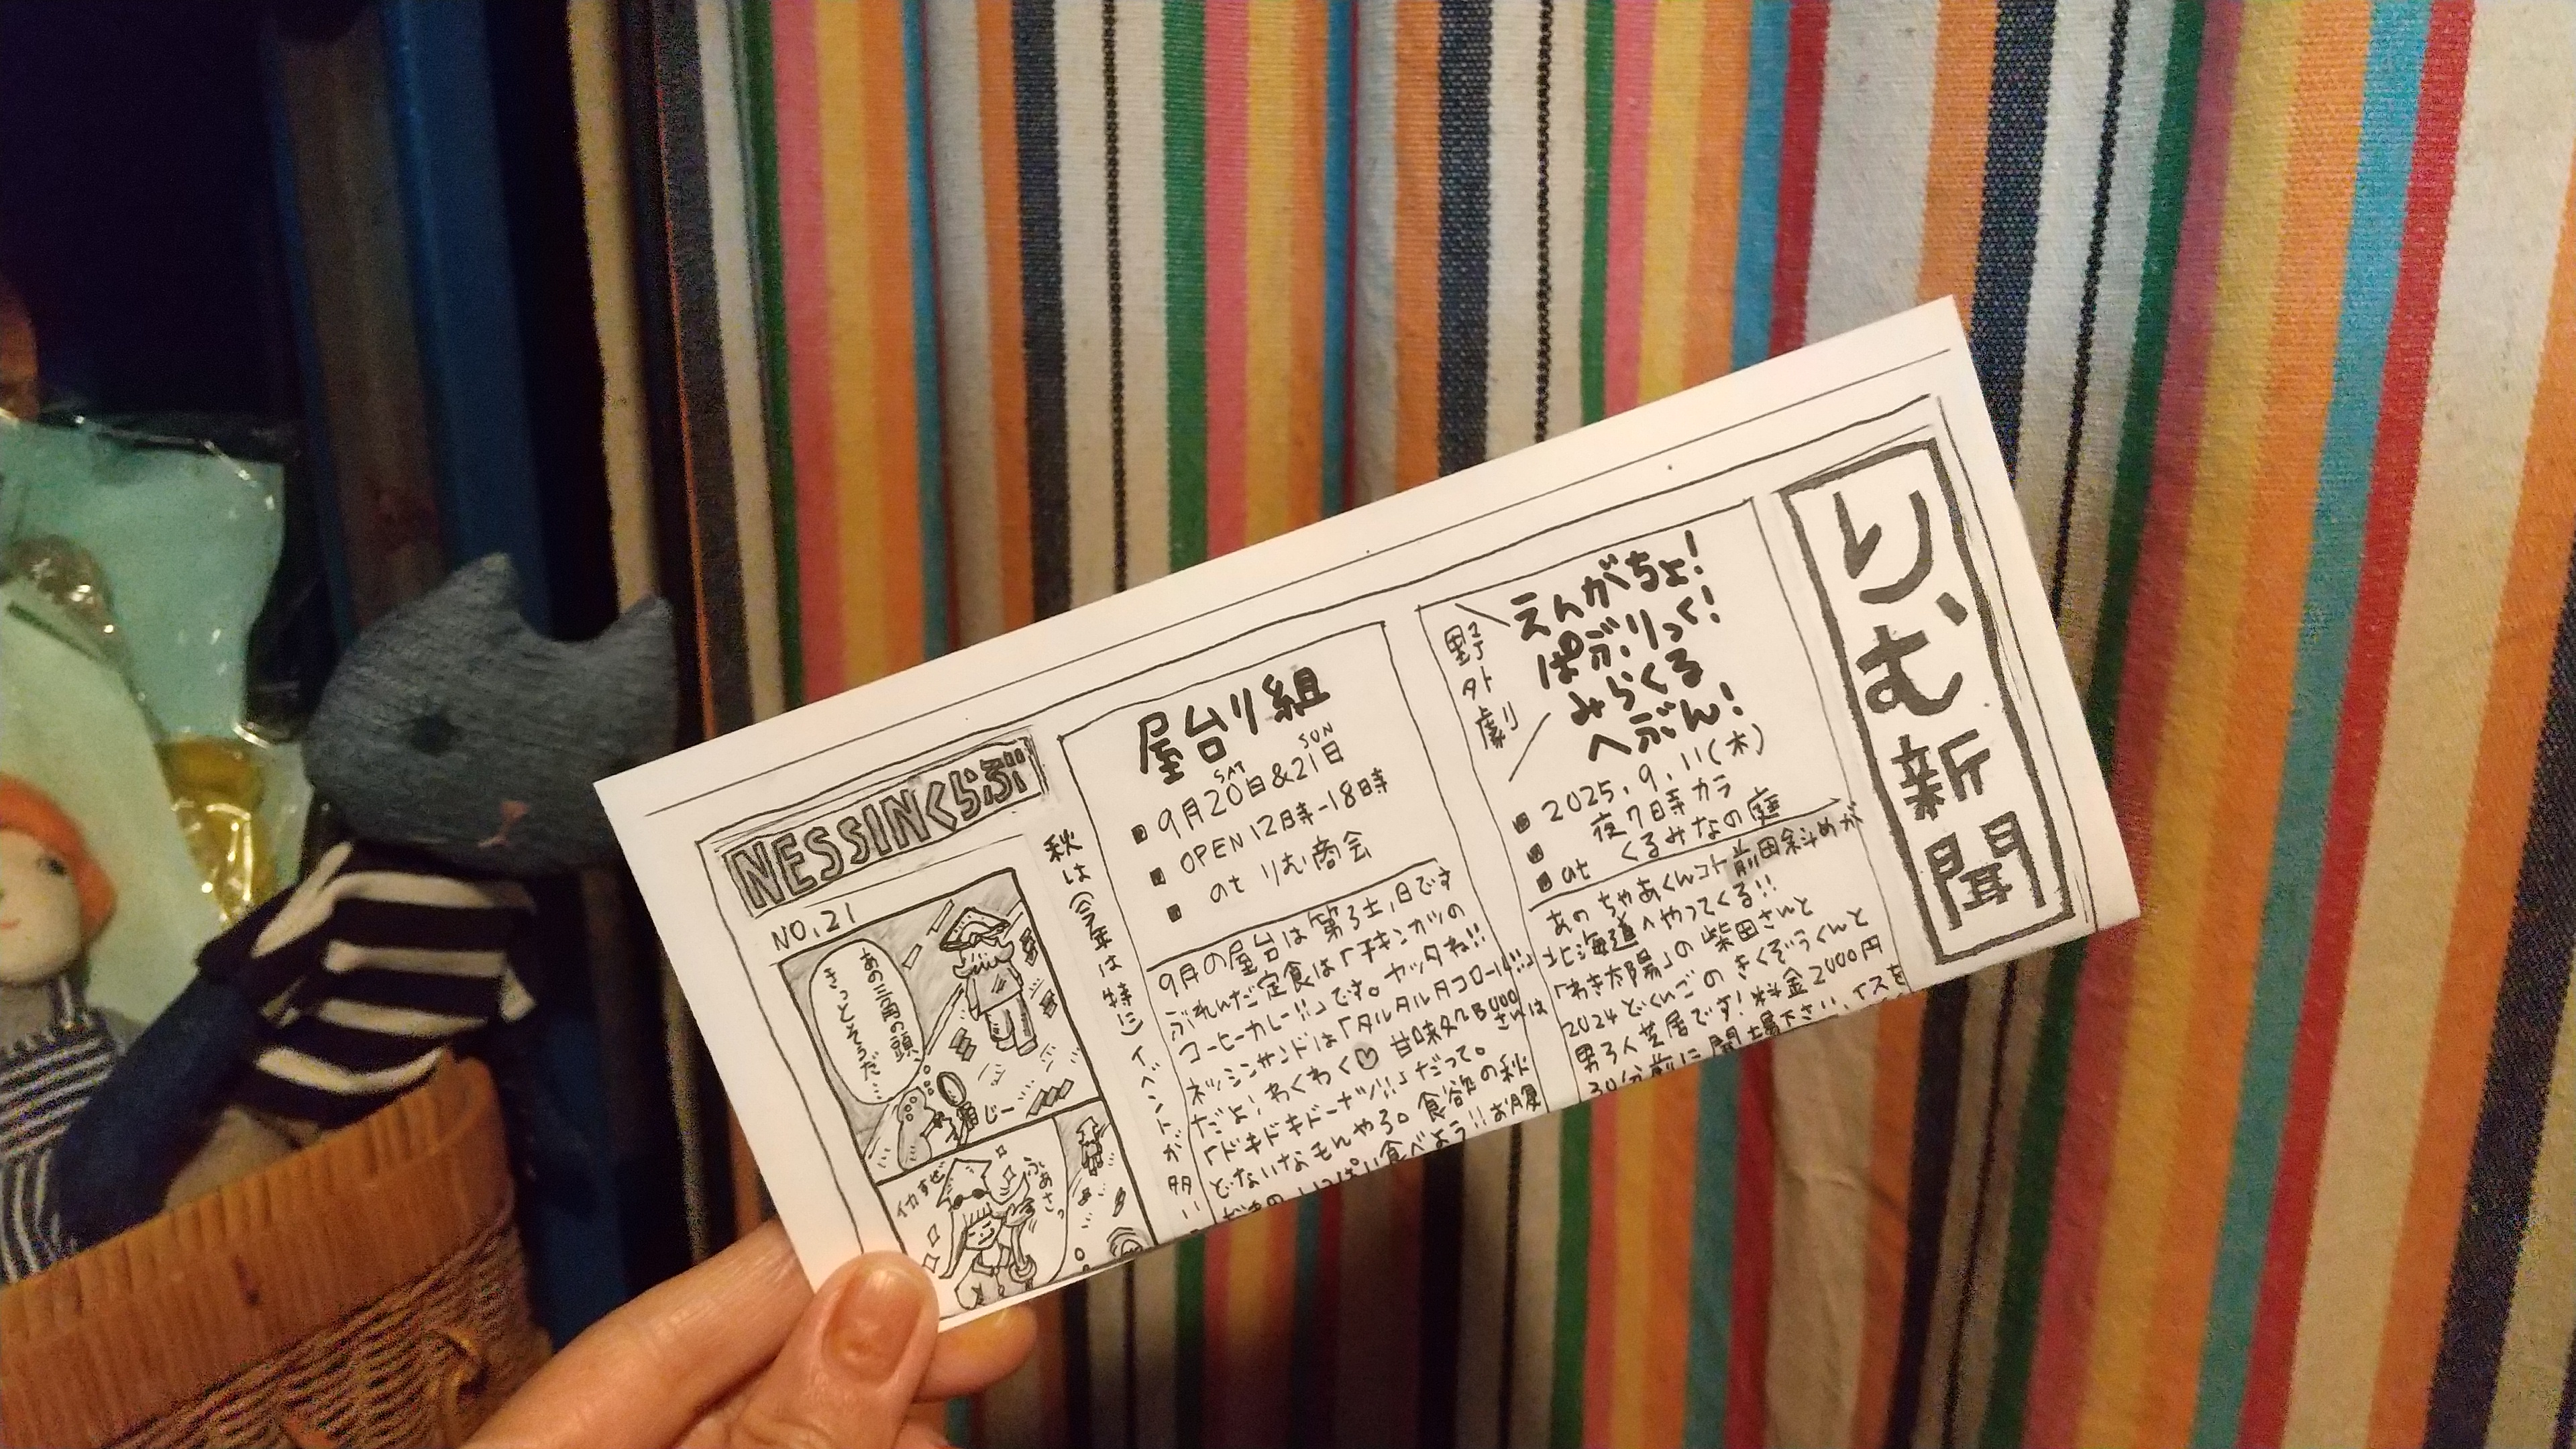 りむ新聞
野外劇
えんがちょ!
ぱぶりっく!
みらくる
へぶん!
2025.9.11(木)
夜7時カラ
at くるみなの庭
あの ちゃあくんコト前田斜めが
北海道へやってくる!!
「わき太陽」の 柴田さんと
2024 どくんごの きくぞうくんと
男3人芝居です! 料金2000円
30分前に 開場下さい、イスを
屋台り組
SAT SUN
9月20日&21日
OPEN 12時-18時
at りむ商会
9月の屋台は 第3土,日です
ぶれんだ定食は「チキンカツの
コーヒーカレー!!」です。ヤッタね!!
ネッシンサンドは「タルタルタコロール!!」
だよ! わくわく♡ 甘味処BOOさんは
「ドキドキドーナツ!!」だって。
どないなもんやろ。食欲の秋
いっぱい食べよう!! お腹
秋は(今年は特に)イベントが多い
NESSINくらぶ
NO.21
あの三角の頭、
きっとそうだ…
じー
イカすぜ
ふぁさっ